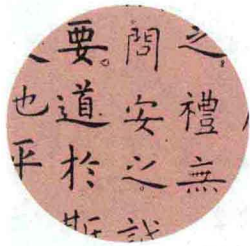 之禮無
問安之
要道於斯
也平